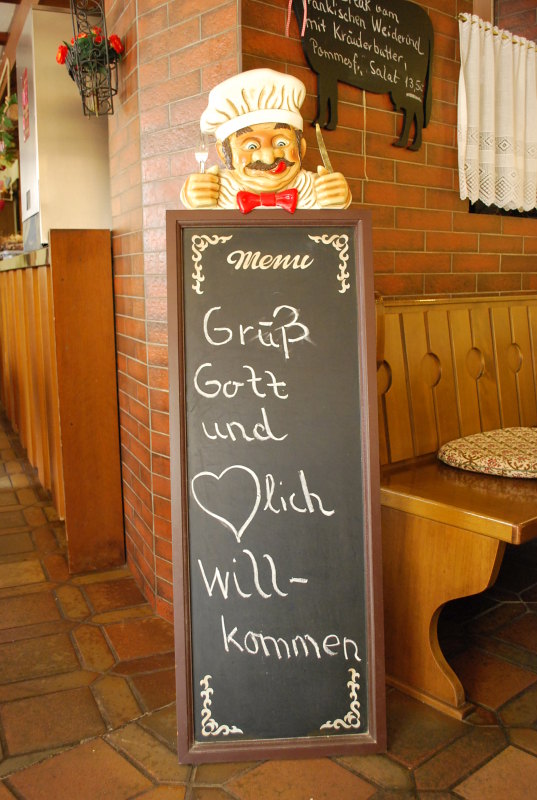 vom
fränkischen Weiderind
mit Kräuterbutter,
Pommesf., Salat 13,50
Menu
Grüß
Gott
und
♡lich
Will-
kommen